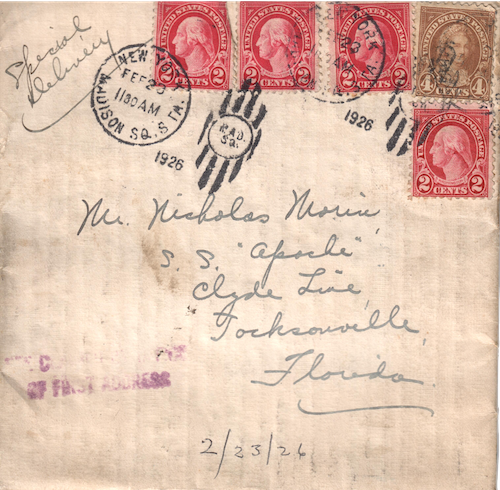 Special
Delivery
NEW YORK, N.Y.
FEB 23
11 30 AM
MADISON SQ. STA.
1926
MAD.
SQ.
1926
UNITED STATES POSTAGE
2 CENTS 2
UNITED STATES POSTAGE
2 CENTS 2
UNITED STATES POSTAGE
2 CENTS 2
UNITED STATES POSTAGE
4 CENTS 4
UNITED STATES POSTAGE
2 CENTS 2
Mr. Nicholas Morin,
S. S. "Apache"
Clyde Line,
Jacksonville,
Florida.
OF FIRST ADDRESS
2/23/26